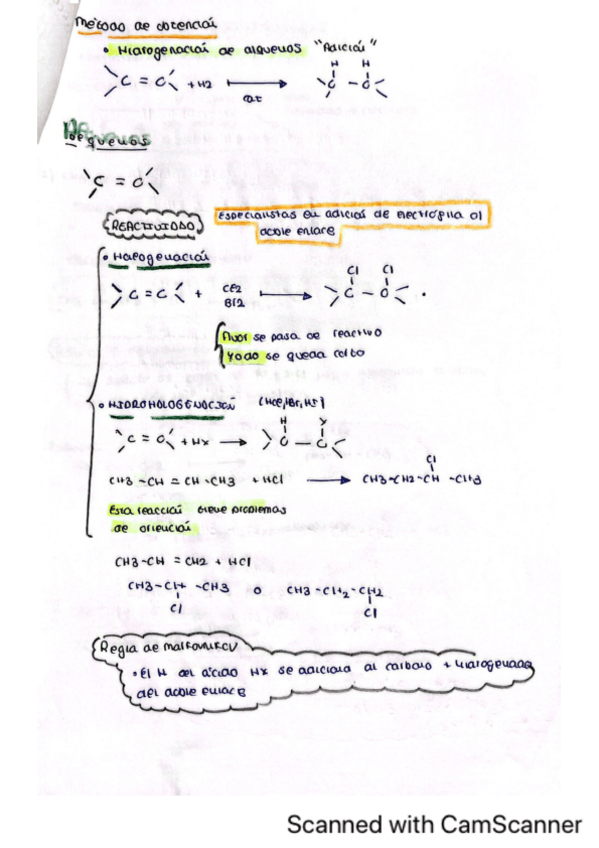 Método de obtención
• Hidrogenación de alquenos "Adición"
H H
C = C + H2 → C - C
cat
Alquenos
C = C
REACTIVIDAD
Especialistas en adición de electrófila al
doble enlace
• Halogenación
Cl Cl
C = C + Cl2 → C - C .
Br2
Fluor se pasa de reactivo
Yodo se queda corto
• HIDROHALOGENACIÓN (HCl, HBr, HI)
H X
C = C + HX → C - C
Cl
CH3 - CH = CH - CH3 + HCl → CH3-CH2-CH -CH3
Esta reacción tiene problemas
de orientación
CH3-CH = CH2 + HCl
CH3-CH -CH3 o CH3-CH2-CH2
Cl Cl
Regla de Markovnikov
• El H del ácido HX se adiciona al carbono + hidrogenado
del doble enlace
Scanned with CamScanner